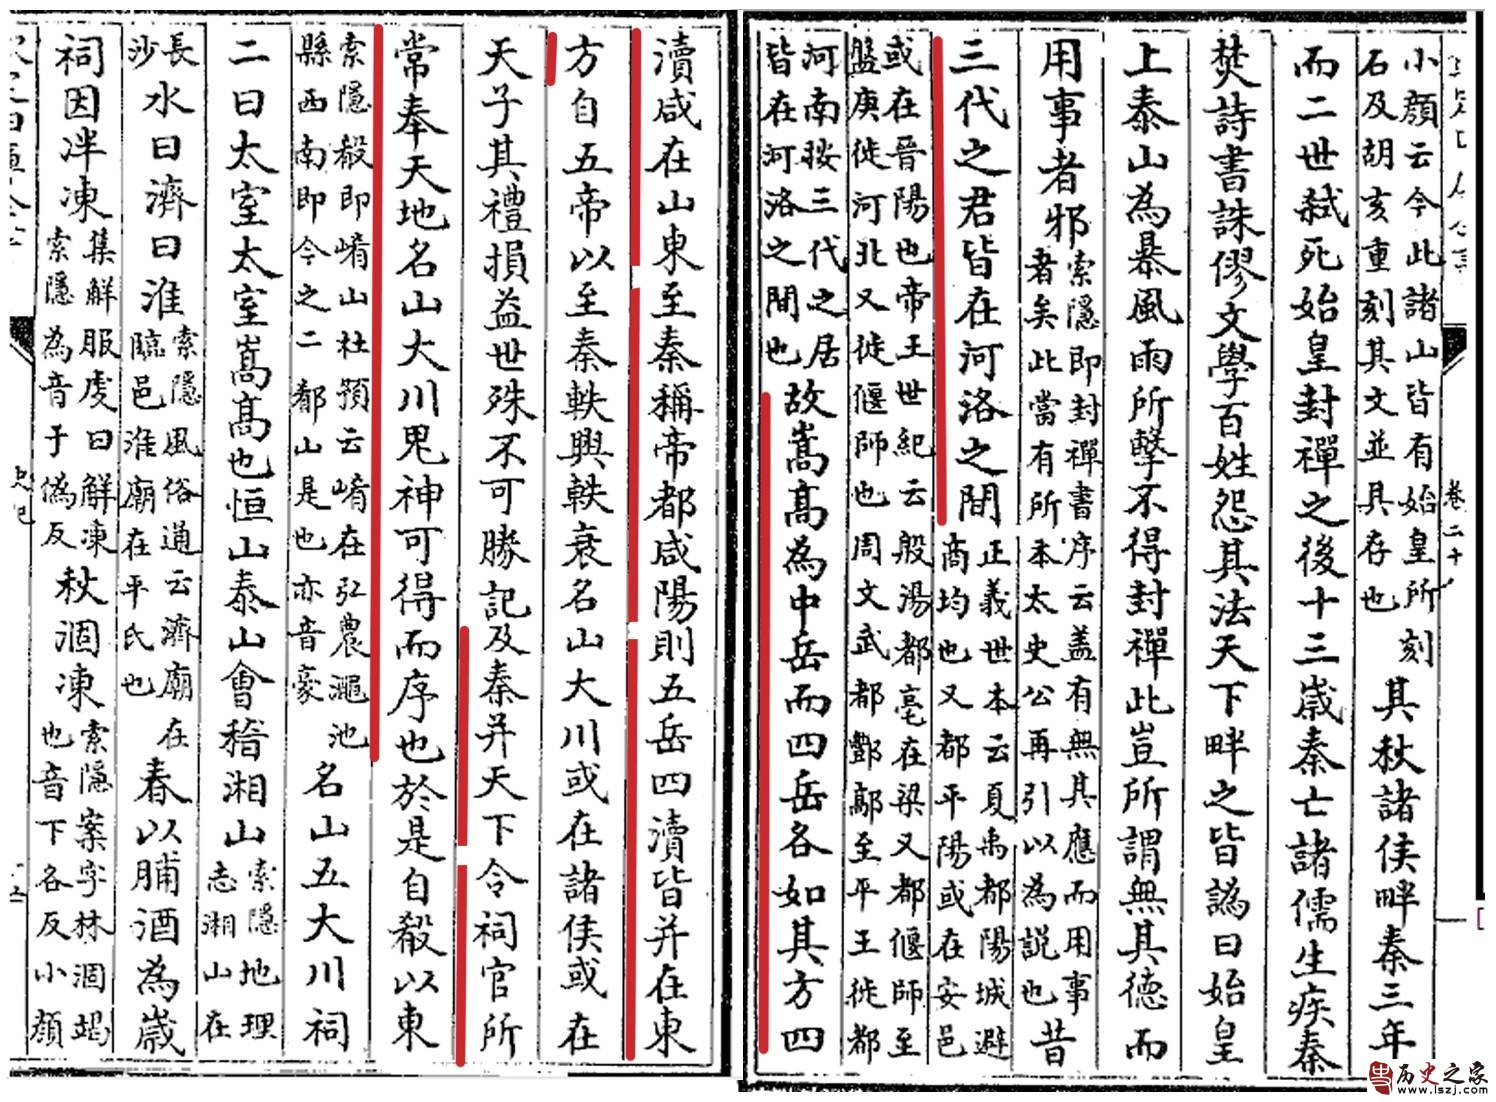 卷二十
小顔云今此諸山皆有始皇所刻
石及胡亥重刻其文並具存也
其秋諸侯畔秦三年
而二世弑死始皇封禪之後十三歳秦亡諸儒生疾秦
焚詩書誅僇文學百姓怨其法天下畔之皆譌曰始皇
上泰山為暴風雨所擊不得封禪此豈所謂無其德而
用事者邪
索隱即封禪書序云盖有無其應而用事
者矣此當有所本太史公再引以為説也
昔
三代之君皆在河洛之間
正義世本云夏禹都陽城避
商均也又都平陽或在安邑
或在晉陽也帝王世紀云殷湯都亳在梁又都偃師至
盤庚徙河北又徙偃師也周文武都酆鄗至平王徙都
河南按三代之居
皆在河洛之間也
故嵩髙為中岳而四岳各如其方四
瀆咸在山東至秦稱帝都咸陽則五岳四瀆皆并在東
方自五帝以至秦軼興軼衰名山大川或在諸侯或在
天子其禮損益世殊不可勝記及秦并天下令祠官所
常奉天地名山大川鬼神可得而序也於是自殽以東
索隱殽即崤山杜預云崤在弘農澠池
縣西南即今之二殽山是也亦音豪
名山五大川祠
二曰太室太室嵩髙也恒山泰山會稽湘山
索隱地理
志湘山在
長
沙
水曰濟曰淮
索隱風俗通云濟廟在
臨邑淮廟在平氏也
春以脯酒為歳
祠因泮凍
集解服虔曰解凍
索隱為音于偽反
秋涸凍
索隱案字林涸竭
也音下各反小顔
史記
历史之家
www.lszj.com